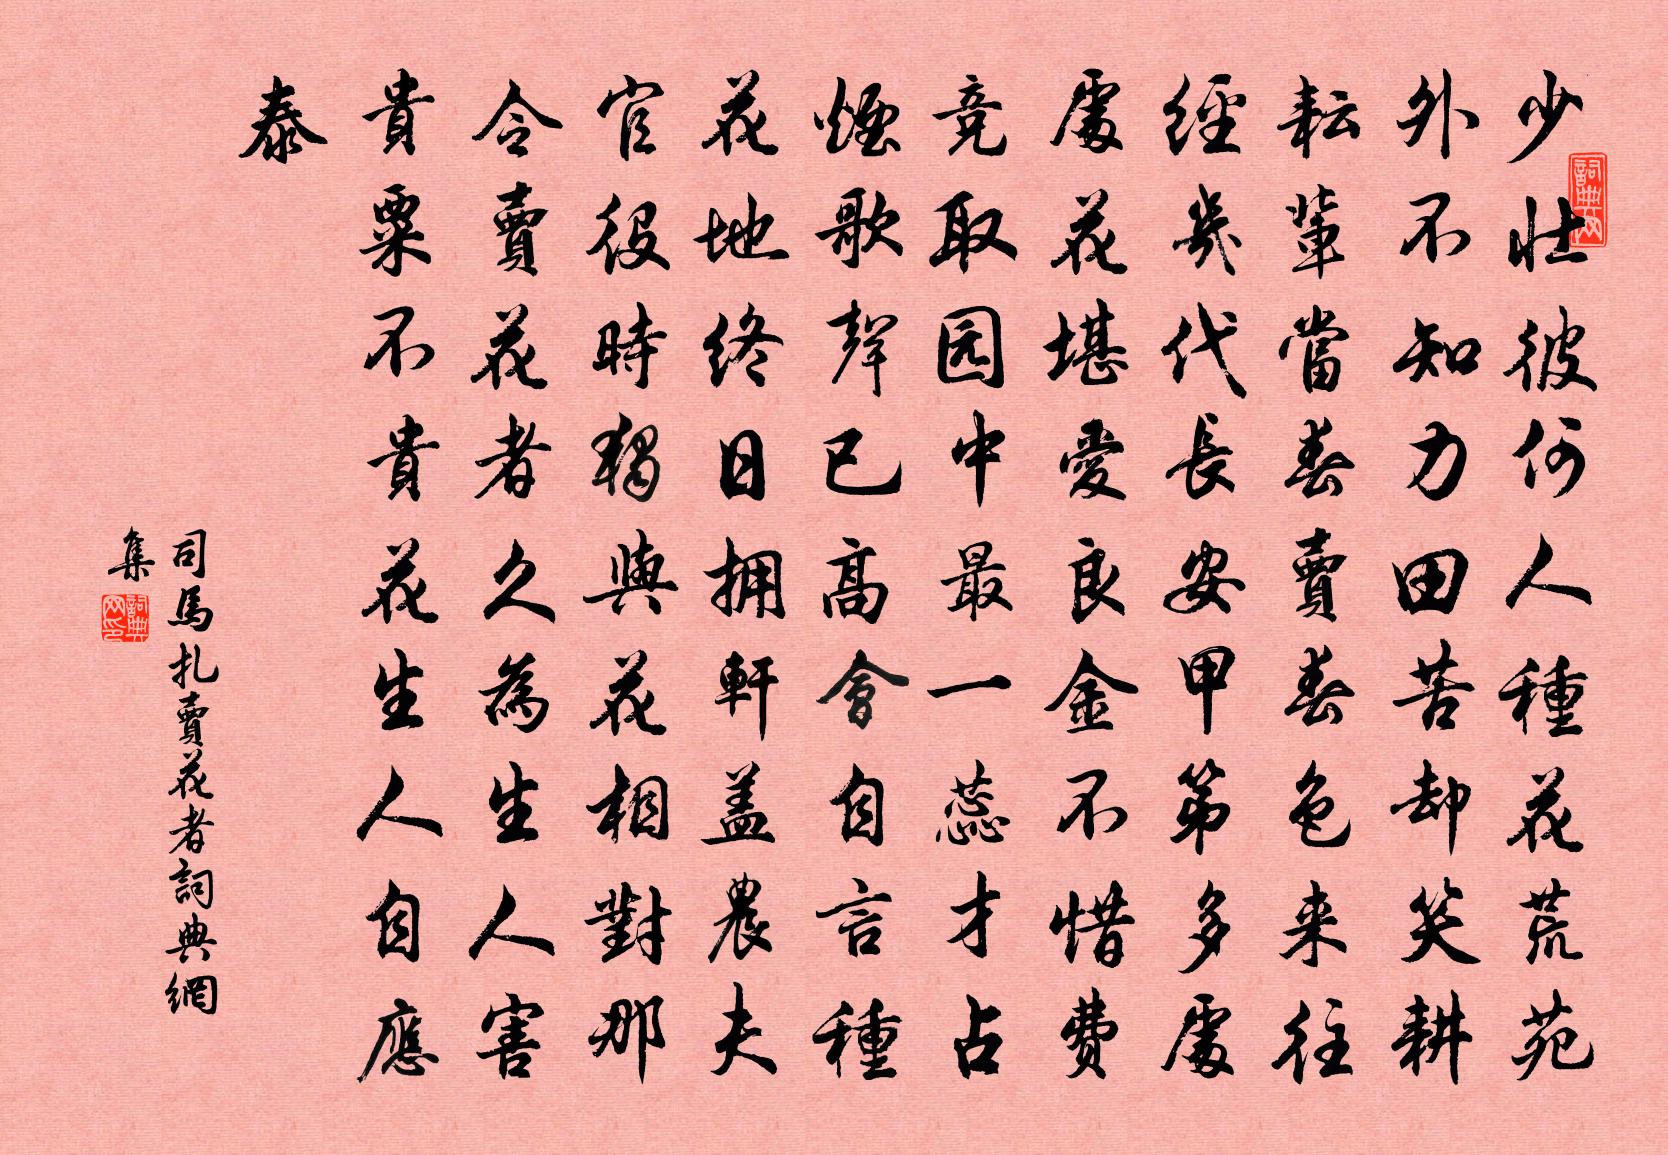 少壯彼何人種花荒苑
外不知力田苦却笑耕
耘輩當春賣春色来往
經幾代長安甲第多處
處花堪愛良金不惜費
竞取园中最一蕊才占
煙歌聲已高會自言種
花地終日拥軒盖農夫
官役時獨與花相對那
令賣花者久為生人害
貴粟不貴花生人自應
泰
司馬扎賣花者詞典網
集
詞典网
詞典网印